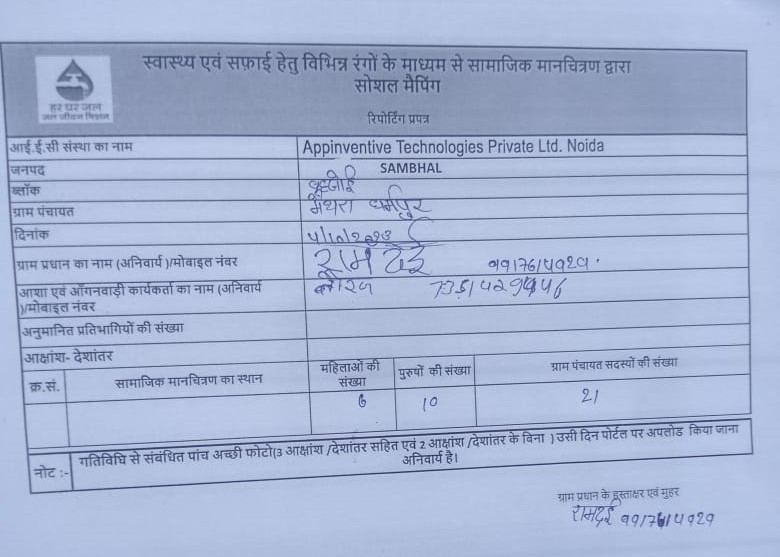 स्वास्थ्य एवं सफ़ाई हेतु विभिन्न रंगों के माध्यम से सामाजिक मानचित्रण द्वारा
सोशल मैपिंग
हर घर जल
जल जीवन मिशन
रिपोर्टिंग प्रपत्र
आई.ई.सी संस्था का नाम Appinventive Technologies Private Ltd. Noida
जनपद SAMBHAL
ब्लॉक
ग्राम पंचायत मैथरा धर्मपुर
दिनांक 4/10/2023
ग्राम प्रधान का नाम (अनिवार्य )/मोबाइल नंबर राम देई 9917614929
आशा एवं आँगनवाड़ी कार्यकर्ता का नाम (अनिवार्य
)/मोबाइल नंबर
अनुमानित प्रतिभागियों की संख्या
आक्षांश- देशांतर
क्र.सं. सामाजिक मानचित्रण का स्थान महिलाओं की संख्या पुरुषों की संख्या ग्राम पंचायत सदस्यों की संख्या
6 10 21
नोट :- गतिविधि से संबंधित पांच अच्छी फोटो(3 आक्षांश /देशांतर सहित एवं 2 आक्षांश /देशांतर के बिना ) उसी दिन पोर्टल पर अपलोड किया जाना
अनिवार्य है।
ग्राम प्रधान के हस्ताक्षर एवं मुहर
रामदेई 9917614929